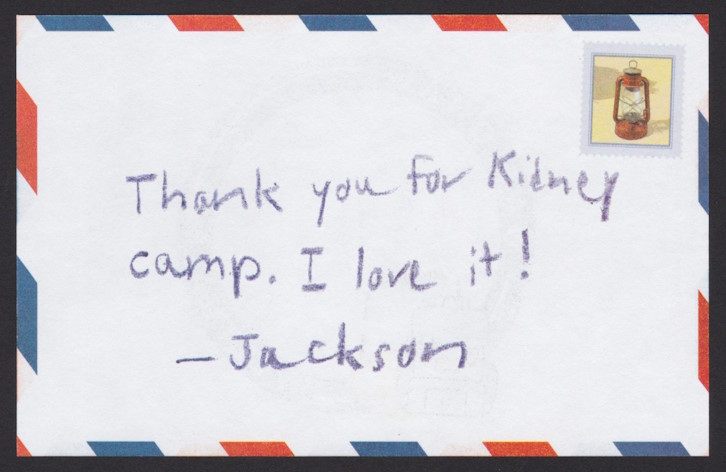 Thank you for Kidney
camp. I love it!
- Jackson